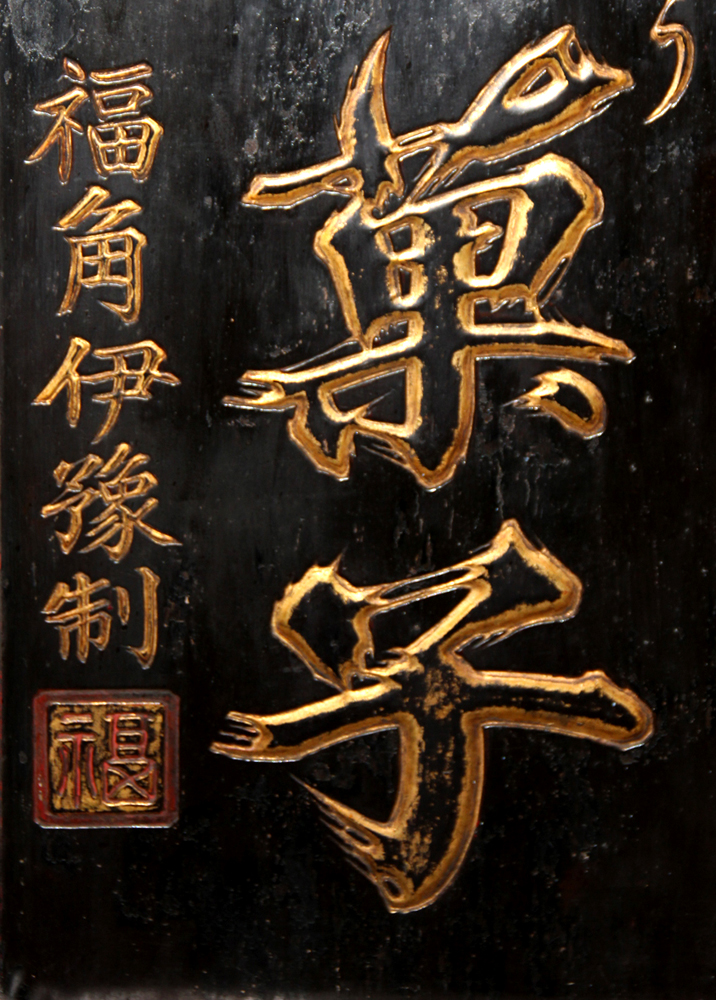 菓子
福角伊豫制
福